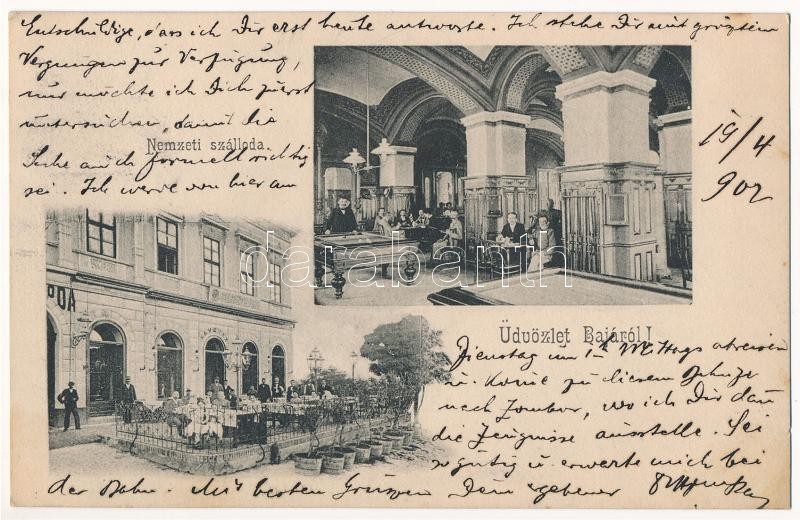 Entschuldige, dass ich Dir erst heute antworte. Ich stehe Dir mit grösstem
Vergnügen zur Verfügung,
nur möchte ich Dich zuerst
untersuchen, damit die
Nemzeti szálloda.
Sache auch formell richtig
sei. Ich werde von hier am
19/4
902
PDA
darabanth
Üdvözlet Bajáról!
Dienstag um 1h Mttgs abreisen
u. komme zu diesem
nach Zombor, wo ich Dir dann
die Zeugnisse ausstelle. Sei
so gütig u. erwarte mich bei
der Bahn. Mit besten Grüssen Dein ergebener